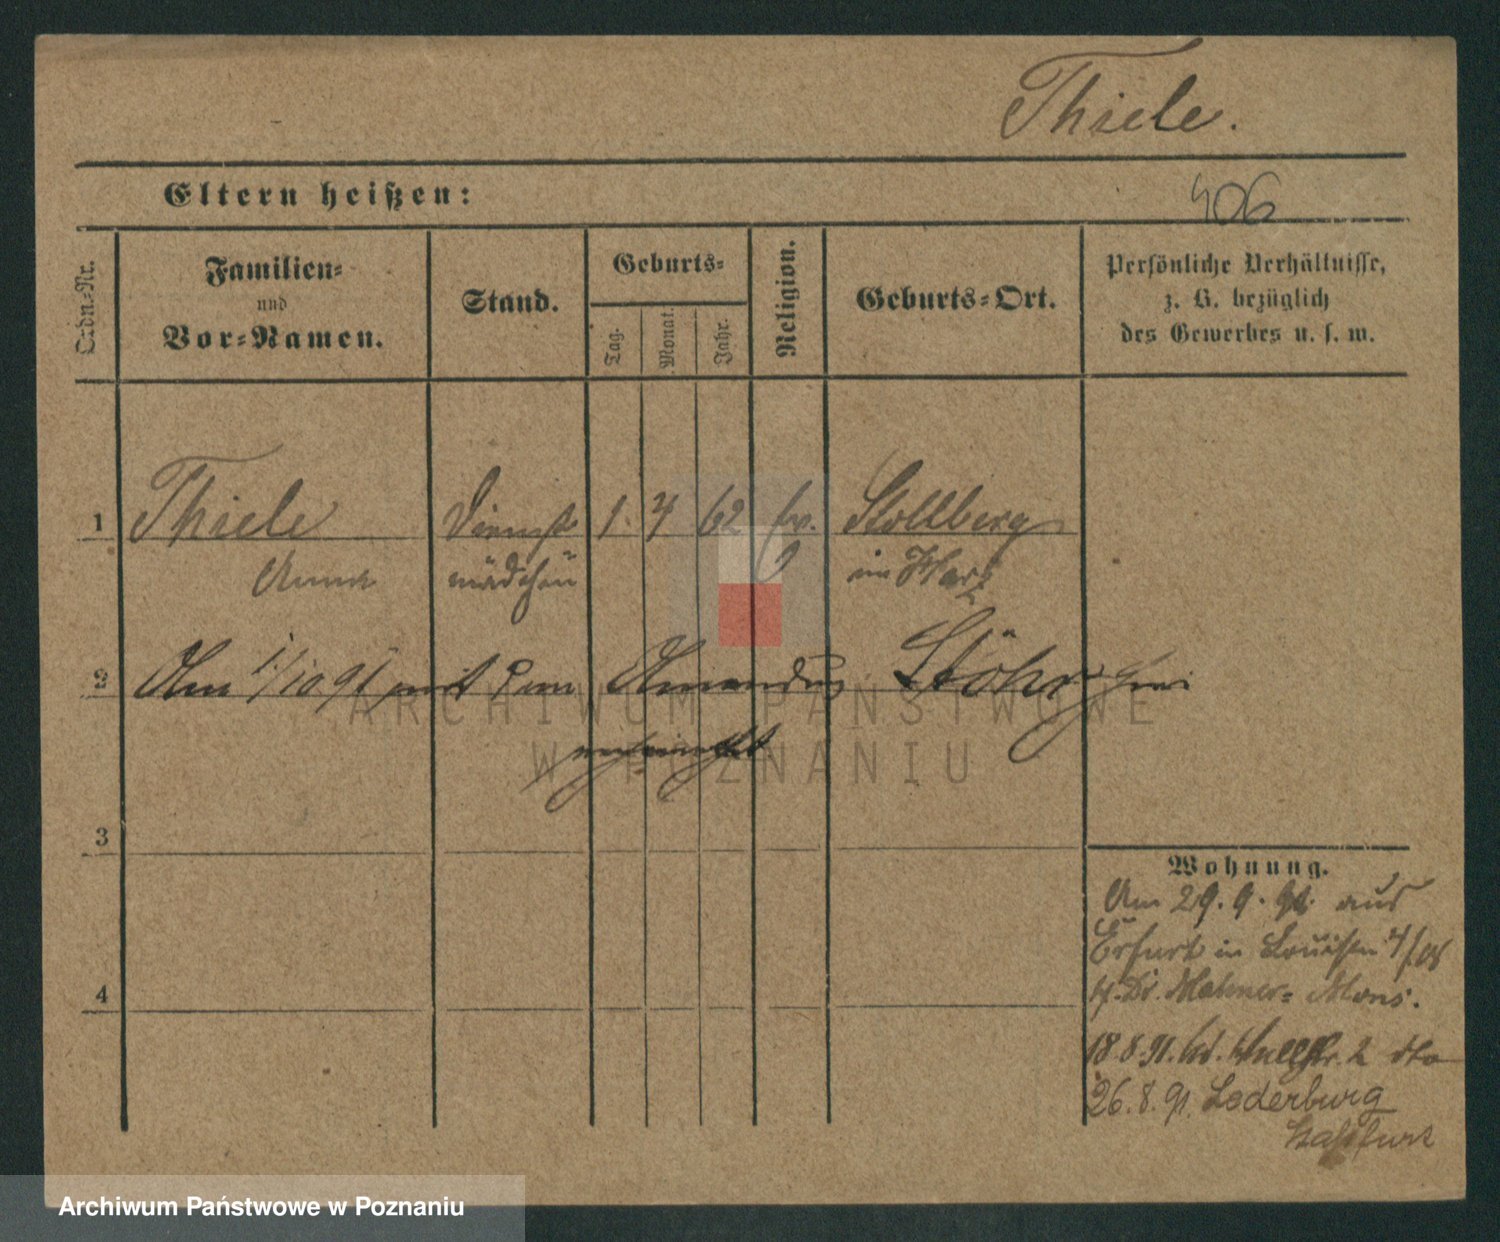 Thiele.
Eltern heißen:
406
Ordn.-Nr.
Familien-
und
Vor-Namen.
Stand.
Geburts-
Tag.
Monat.
Jahr.
Religion.
Geburts-Ort.
Persönliche Verhältnisse,
z. B. bezüglich
des Gewerbes u. s. w.
1 Thiele Dienst 1. 4 62 ev. Stollberg
Anna mädchen im Harz
2 Am 1/10 91 mit dem Amandus Stöhr
ARCHIWUM PAŃSTWOWE
W POZNANIU
3
Wohnung.
Am 29.9. aus
Erfurt in Louisen
4 Dr. Mons.
18.8.91. 2
26.8.91. Lederburg
Staßfurt
Archiwum Państwowe w Poznaniu